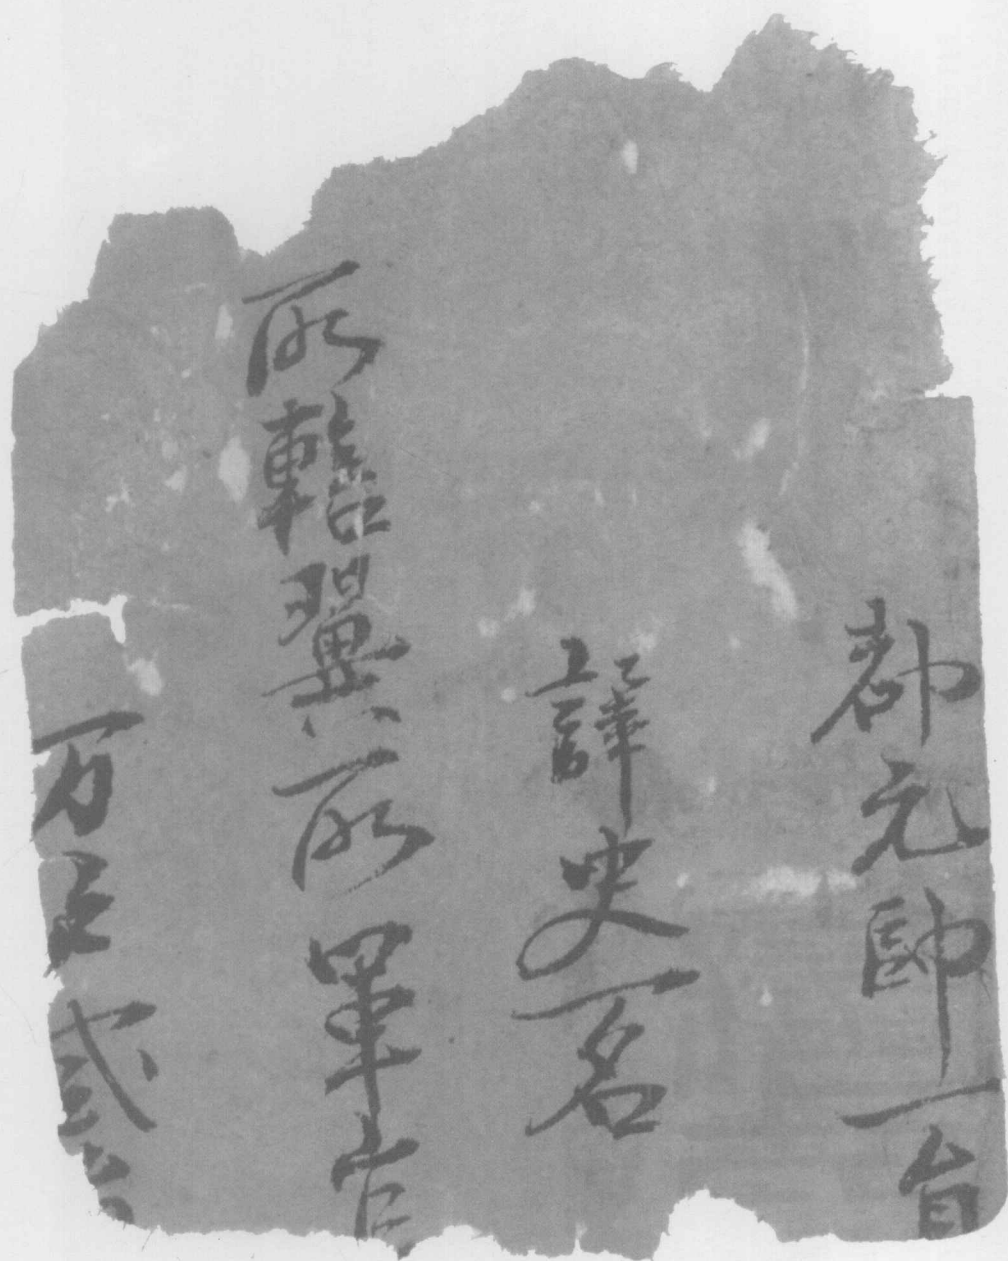 都元帥一員
譯史一名
所轄翼所軍官
万户貳